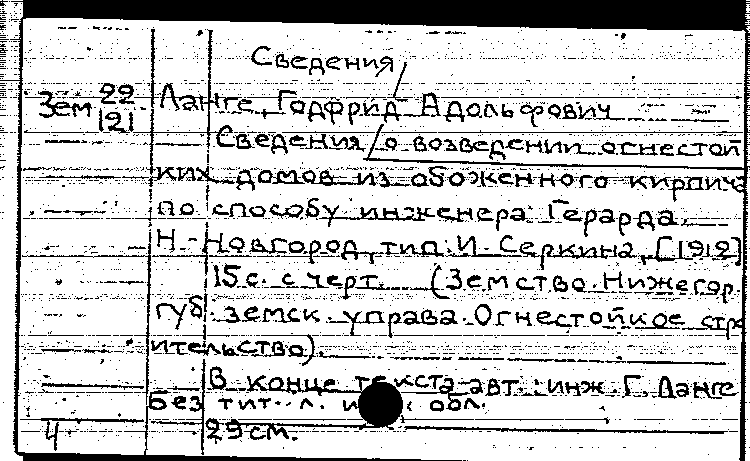 Сведения/
Зем 22/121 Ланге, Годфрид Адольфович
Сведения/о возведении огнестой
ких домов из обожженного кирпича
по способу инженера Герарда.
Н.-Новгород, тип. И. Серкина, [1912]
15 с. с черт. (Земство. Нижегор.
губ. земск. управа. Огнестойкое стро
ительство).
В конце текста авт.: инж. Г. Ланге
Без тит. л. и обл.
4 29 см.